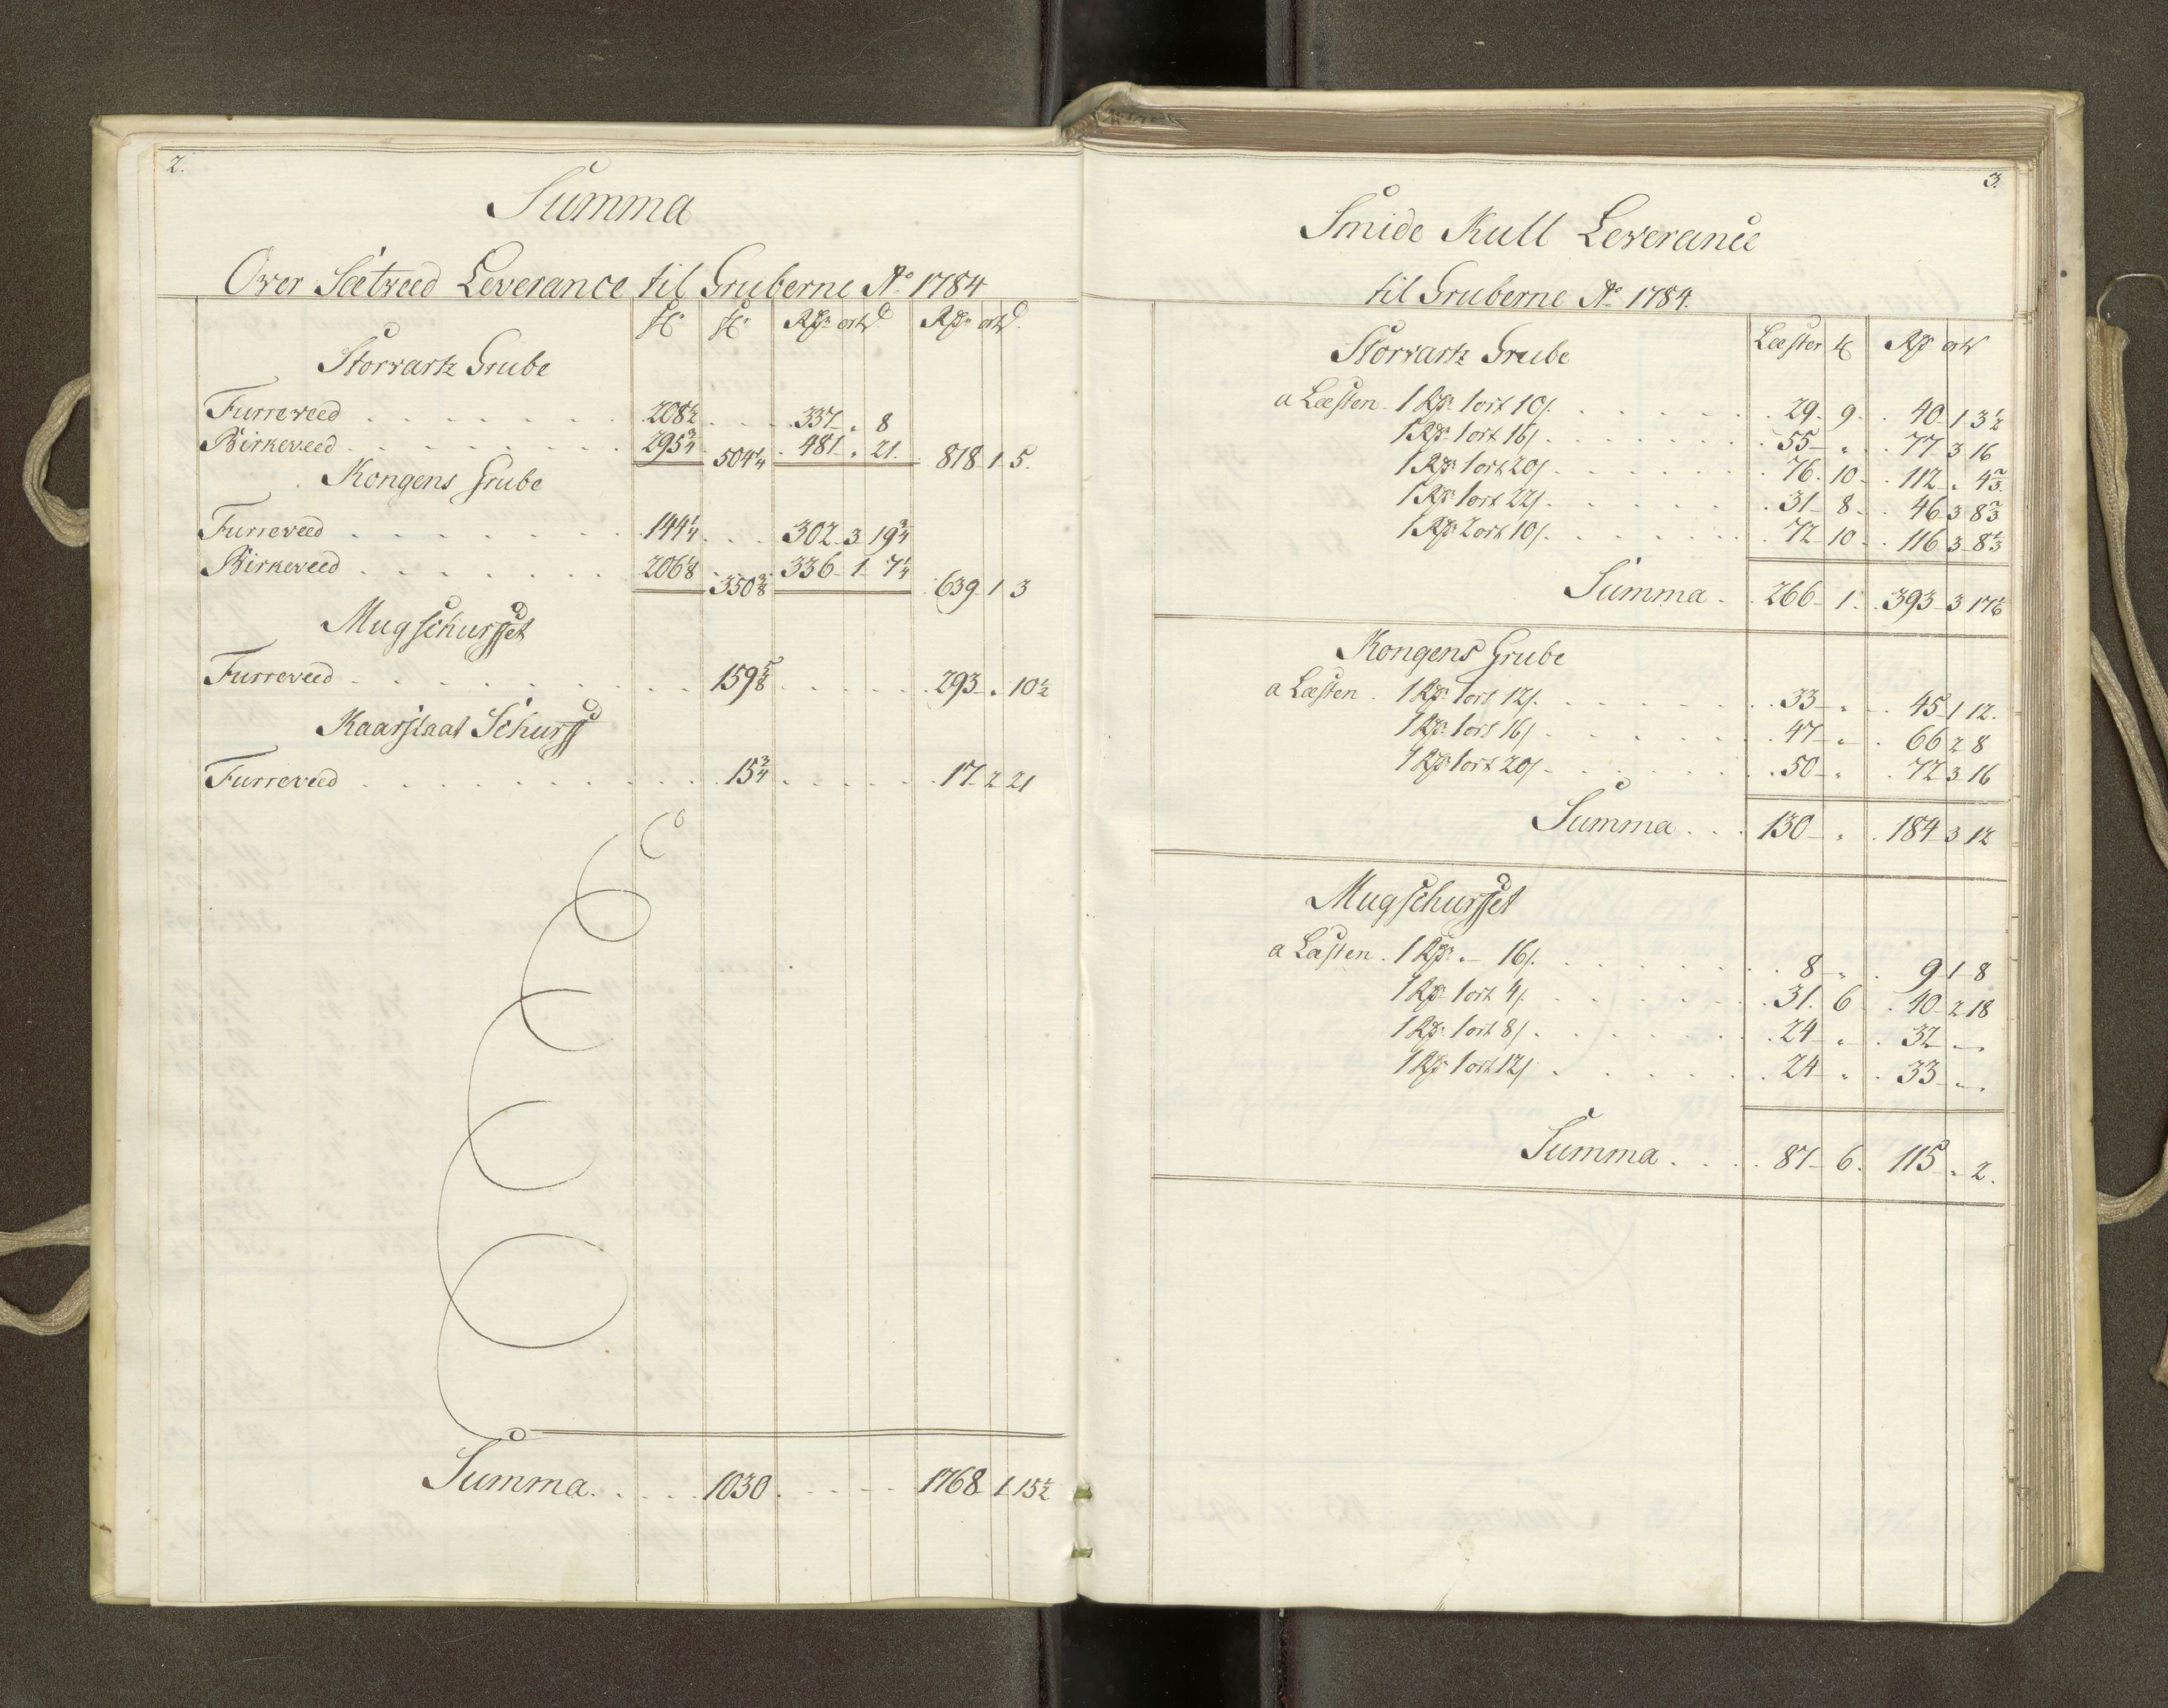 2.
Summa
Over Sætveed Leverance til Gruberne Ao 1784
Rdr ort Rdr ort
Storvartz Grube
Furreveed 208½ 337 " 8
Birkeveed 295¾ 504¼ 481 " 21 818 1 5
Kongens Grube
Furreveed 144¼ 302 3 19¾
Birkeveed 206⅛ 350⅜ 336 1 7¼ 639 1 3
Mugschurffet
Furreveed 159⅝ 293 " 10½
Kaarstaat Schurff
Furreveed 15¾ 17 2 21
Summa 1030 1768 1 15½
3.
Smide Kull Leverance
til Gruberne Ao 1784
Læster Rdr ort
Storvartz Grube
a Læsten 1 Rdr 1 ort 10 s. 29 9 40 1 3½
1 Rdr 1 ort 16 s. 55 " 77 3 16
1 Rdr 1 ort 20 s. 76 10 112 " 4⅔
1 Rdr 1 ort 22 s. 31 8 46 3 8⅔
1 Rdr 2 ort 10 s. 72 10 116 3 8⅓
Summa 266 1 393 3 17⅙
Kongens Grube
a Læsten 1 Rdr 1 ort 12 s. 33 " 45 1 12
1 Rdr 1 ort 16 s. 47 " 66 2 8
1 Rdr 1 ort 20 s. 50 " 72 3 16
Summa 130 " 184 3 12
Mugschurffet
a Læsten 1 Rdr " 16 s. 8 " 9 1 8
1 Rdr 1 ort 4 s. 31 6 40 2 18
1 Rdr 1 ort 8 s. 24 " 32 " "
1 Rdr 1 ort 12 s. 24 " 33 " "
Summa 87 6 115 " 2